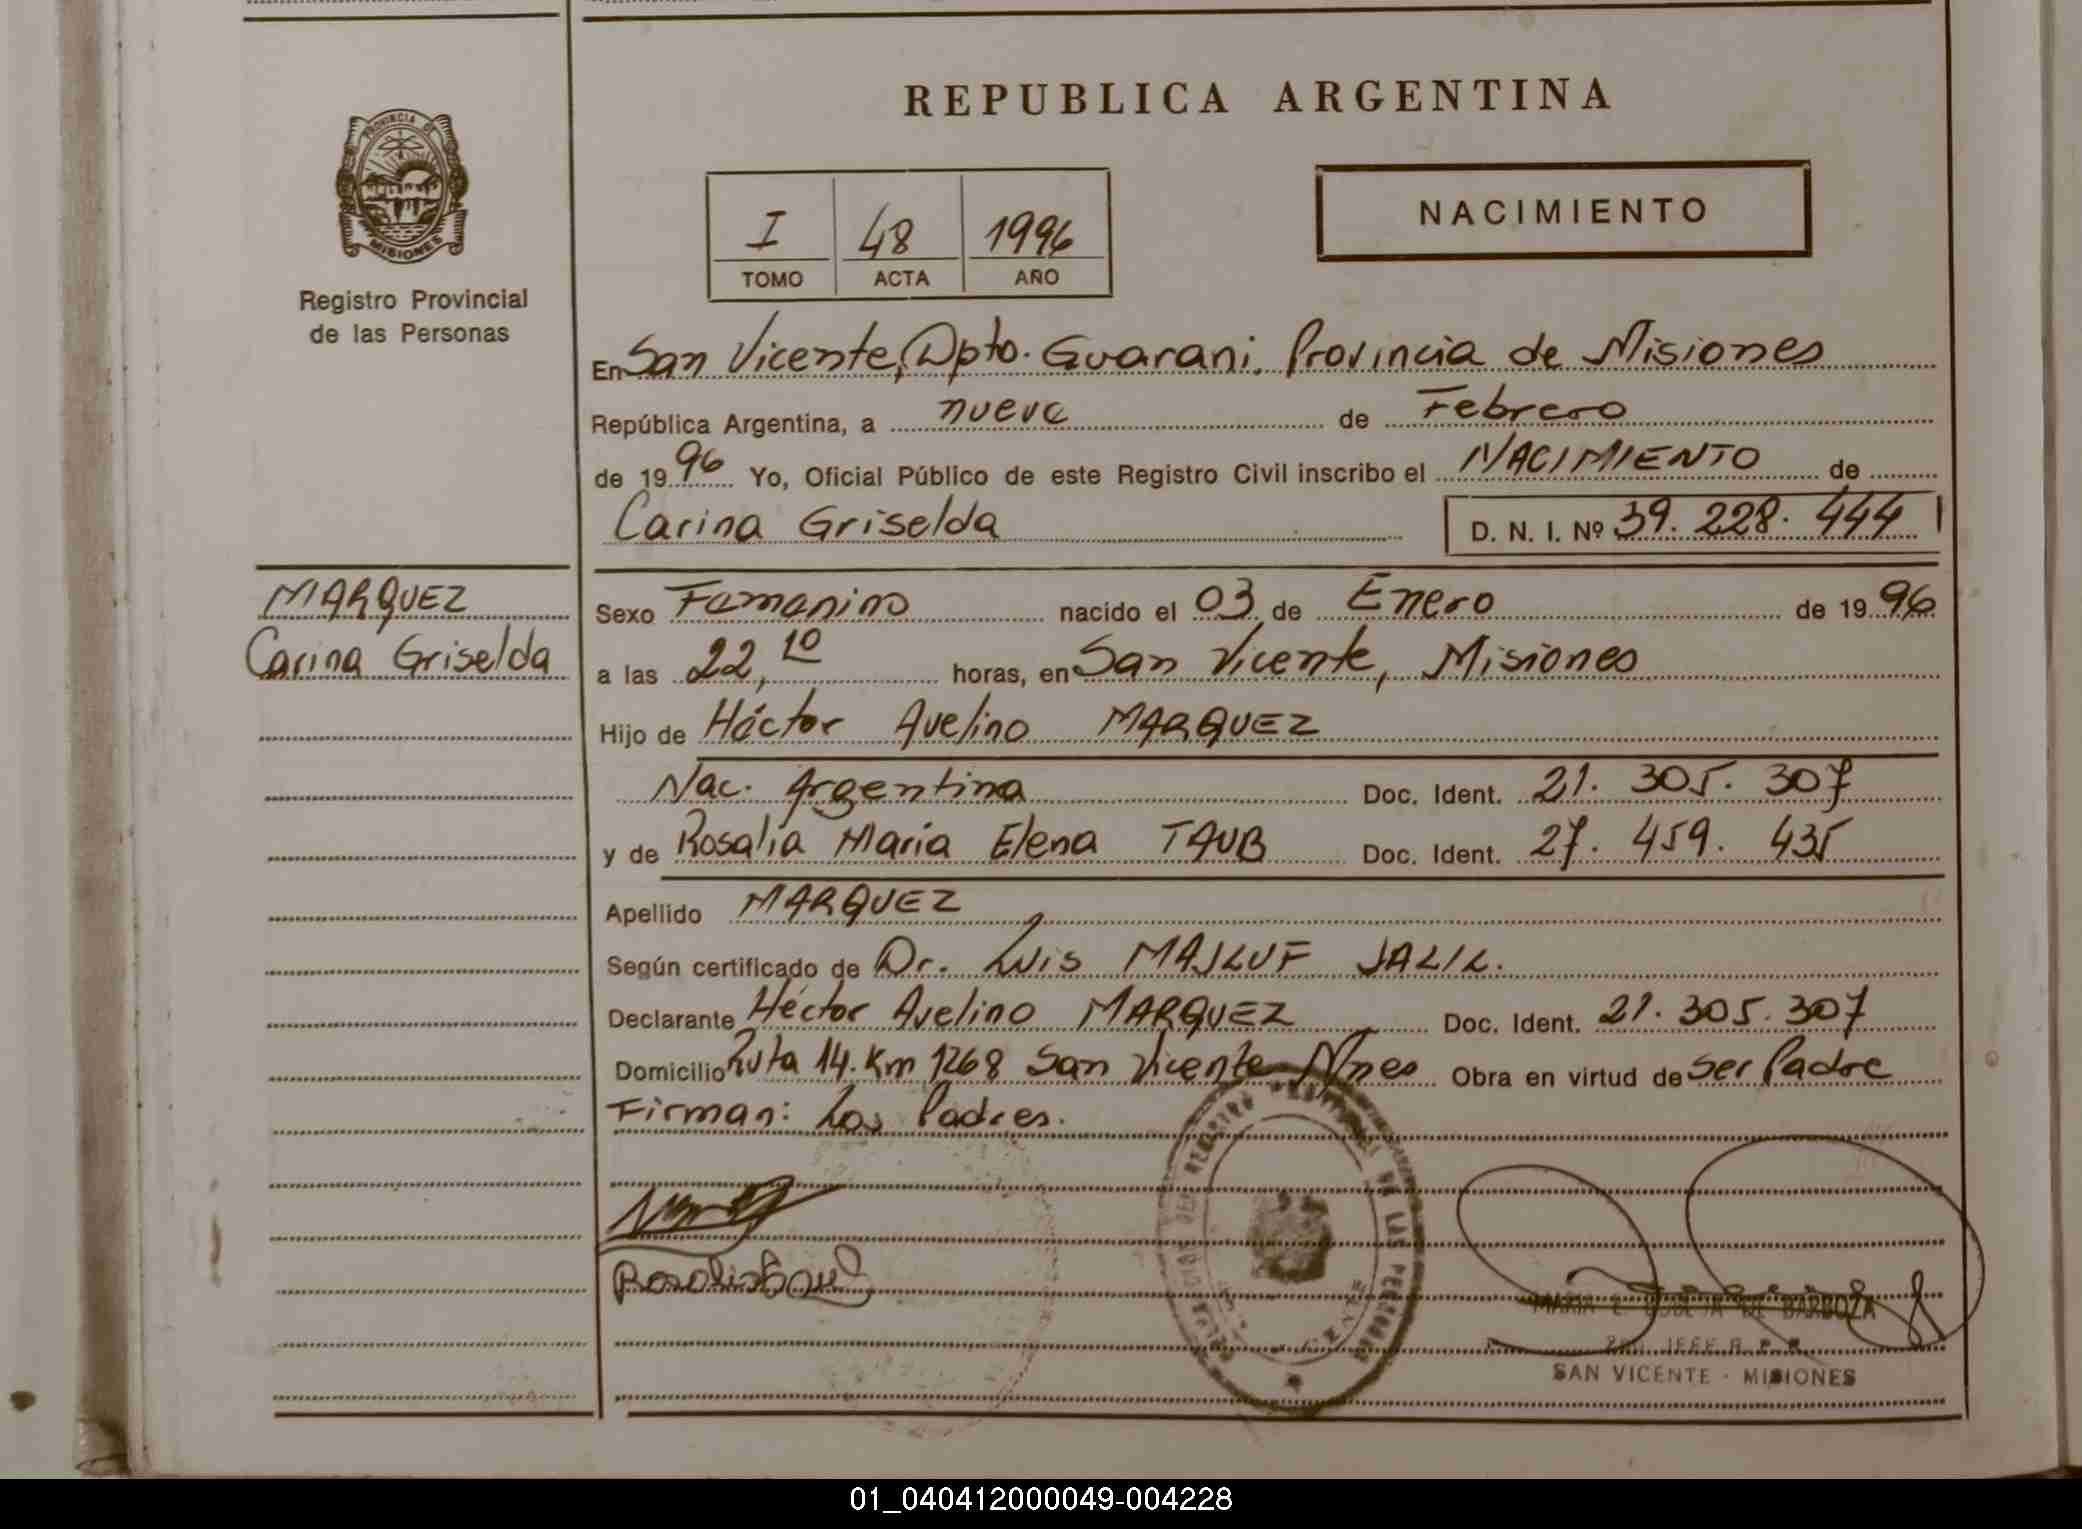 REPUBLICA ARGENTINA
PROVINCIA DE
MISIONES
Registro Provincial
de las Personas
I 48 1996
TOMO ACTA AÑO
NACIMIENTO
En San Vicente, Dpto. Guarani, Provincia de Misiones
República Argentina, a nueve de Febrero
de 1996 Yo, Oficial Público de este Registro Civil inscribo el NACIMIENTO de
Carina Griselda D. N. I. Nº 39. 228. 444
MARQUEZ
Carina Griselda
Sexo Femenino nacido el 03 de Enero de 1996
a las 22,10 horas, en San Vicente, Misiones
Hijo de Héctor Avelino MARQUEZ
Nac. Argentina Doc. Ident. 21. 305. 307
y de Rosalía María Elena TAUB Doc. Ident. 27. 459. 435
Apellido MARQUEZ
Según certificado de Dr. Luis MAJLUF JALIL.
Declarante Héctor Avelino MARQUEZ Doc. Ident. 21. 305. 307
Domicilio Ruta 14. Km 1268 San Vicente Mnes Obra en virtud de ser Padre
Firman: Los Padres.
DE LAS PERSONAS
MARIA E. DE BARBOZA
JEFE R. P. P.
SAN VICENTE - MISIONES
01_040412000049-004228